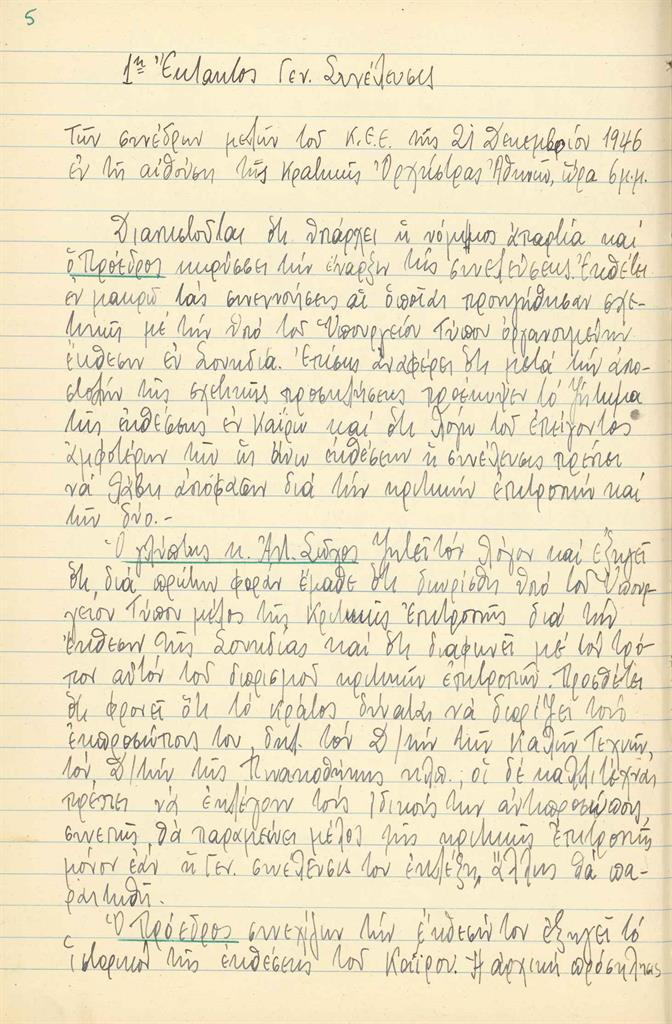 5
1η Ἔκτακτος Γεν. Συνέλευσις
Τῶν συνέδρων μελῶν τοῦ Κ.Ε.Ε. τῆς 21 Δεκεμβρίου 1946
ἐν τῇ αἰθούσῃ τῆς Κρατικῆς Ὀρχήστρας Ἀθηνῶν, ὥρα 5 μ.μ.
Διαπιστοῦται ὅτι ὑπάρχει ἡ νόμιμος ἀπαρτία καὶ
ὁ Πρόεδρος κηρύσσει τὴν ἔναρξιν τῆς συνελεύσεως. Ἐκθέτει
ἐν μακρῷ τὰς συνεννοήσεις αἱ ὁποῖαι προηγήθησαν σχε-
τικῶς μὲ τὴν ὑπὸ τοῦ Ὑπουργείου Τύπου ὀργανουμένην
ἔκθεσιν ἐν Σουηδίᾳ. Ἐπίσης ἀναφέρει ὅτι μετὰ τὴν ἀπο-
στολὴν τῆς σχετικῆς προσκλήσεως προέκυψεν τὸ ζήτημα
τῆς ἐκθέσεως ἐν Καΐρῳ καὶ ὅτι λόγῳ τοῦ ἐπείγοντος
ἀμφοτέρων τῶν ὡς ἄνω ἐκθέσεων ἡ συνέλευσις πρέπει
νὰ λάβῃ ἀπόφασιν διὰ τὴν κριτικὴν ἐπιτροπὴν καὶ
τῶν δύο.-
Ὁ γλύπτης κ. Ἀπ. Σῶχος ζητεῖ τὸν λόγον καὶ ἐξηγεῖ
ὅτι, διὰ πρώτην φορὰν ἔμαθε ὅτι διωρίσθη ὑπὸ τοῦ Ὑπουρ-
γείου Τύπου μέλος τῆς Κριτικῆς Ἐπιτροπῆς διὰ τὴν
ἔκθεσιν τῆς Σουηδίας καὶ ὅτι διαφωνεῖ μὲ τὸν τρό-
πον αὐτὸν τοῦ διορισμοῦ κριτικῶν ἐπιτροπῶν. Προσθέτει
ὅτι φρονεῖ ὅτι τὸ κράτος δύναται νὰ διορίζει τοὺς
ἐκπροσώπους του, δηλ. τὸν Δ/τὴν τῶν Καλῶν Τεχνῶν,
τὸν Δ/τὴν τῆς Πινακοθήκης κλπ., οἱ δὲ καλλιτέχναι
πρέπει νὰ ἐκλέγουν τοὺς ἰδικούς των ἀντιπροσώπους,
συνεπῶς θὰ παραμείνει μέλος τῆς κριτικῆς ἐπιτροπῆς
μόνον ἐὰν ἡ Γεν. συνέλευσις τὸν ἐκλέξῃ, ἄλλως θὰ πα-
ραιτηθῇ.
Ὁ Πρόεδρος συνεχίζων τὴν ἔκθεσίν του ἐξηγεῖ τὸ
ἱστορικὸν τῆς ἐκθέσεως τοῦ Καΐρου. Ἡ ἀρχικὴ πρόσκλησις